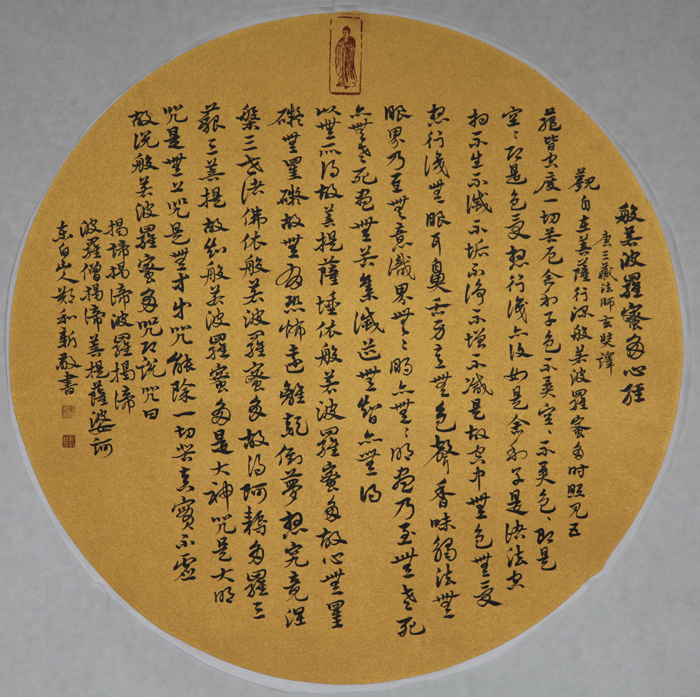 般若波羅蜜多心經
唐三藏法師玄奘譯
觀自在菩薩行深般若波羅蜜多時照見五
蘊皆空度一切苦厄舍利子色不異空空不異色色即是
空空即是色受想行識亦復如是舍利子是諸法空
相不生不滅不垢不淨不增不減是故空中無色無受
想行識無眼耳鼻舌身意無色聲香味觸法無
眼界乃至無意識界無無明亦無無明盡乃至無老死
亦無老死盡無苦集滅道無智亦無得
以無所得故菩提薩埵依般若波羅蜜多故心無罣
礙無罣礙故無有恐怖遠離顛倒夢想究竟涅
槃三世諸佛依般若波羅蜜多故得阿耨多羅三
藐三菩提故知般若波羅蜜多是大神咒是大明
咒是無上咒是無等等咒能除一切苦真實不虛
故說般若波羅蜜多咒即說咒曰
揭諦揭諦波羅揭諦
波羅僧揭諦菩提薩婆訶
東白山人鄭和新敬書